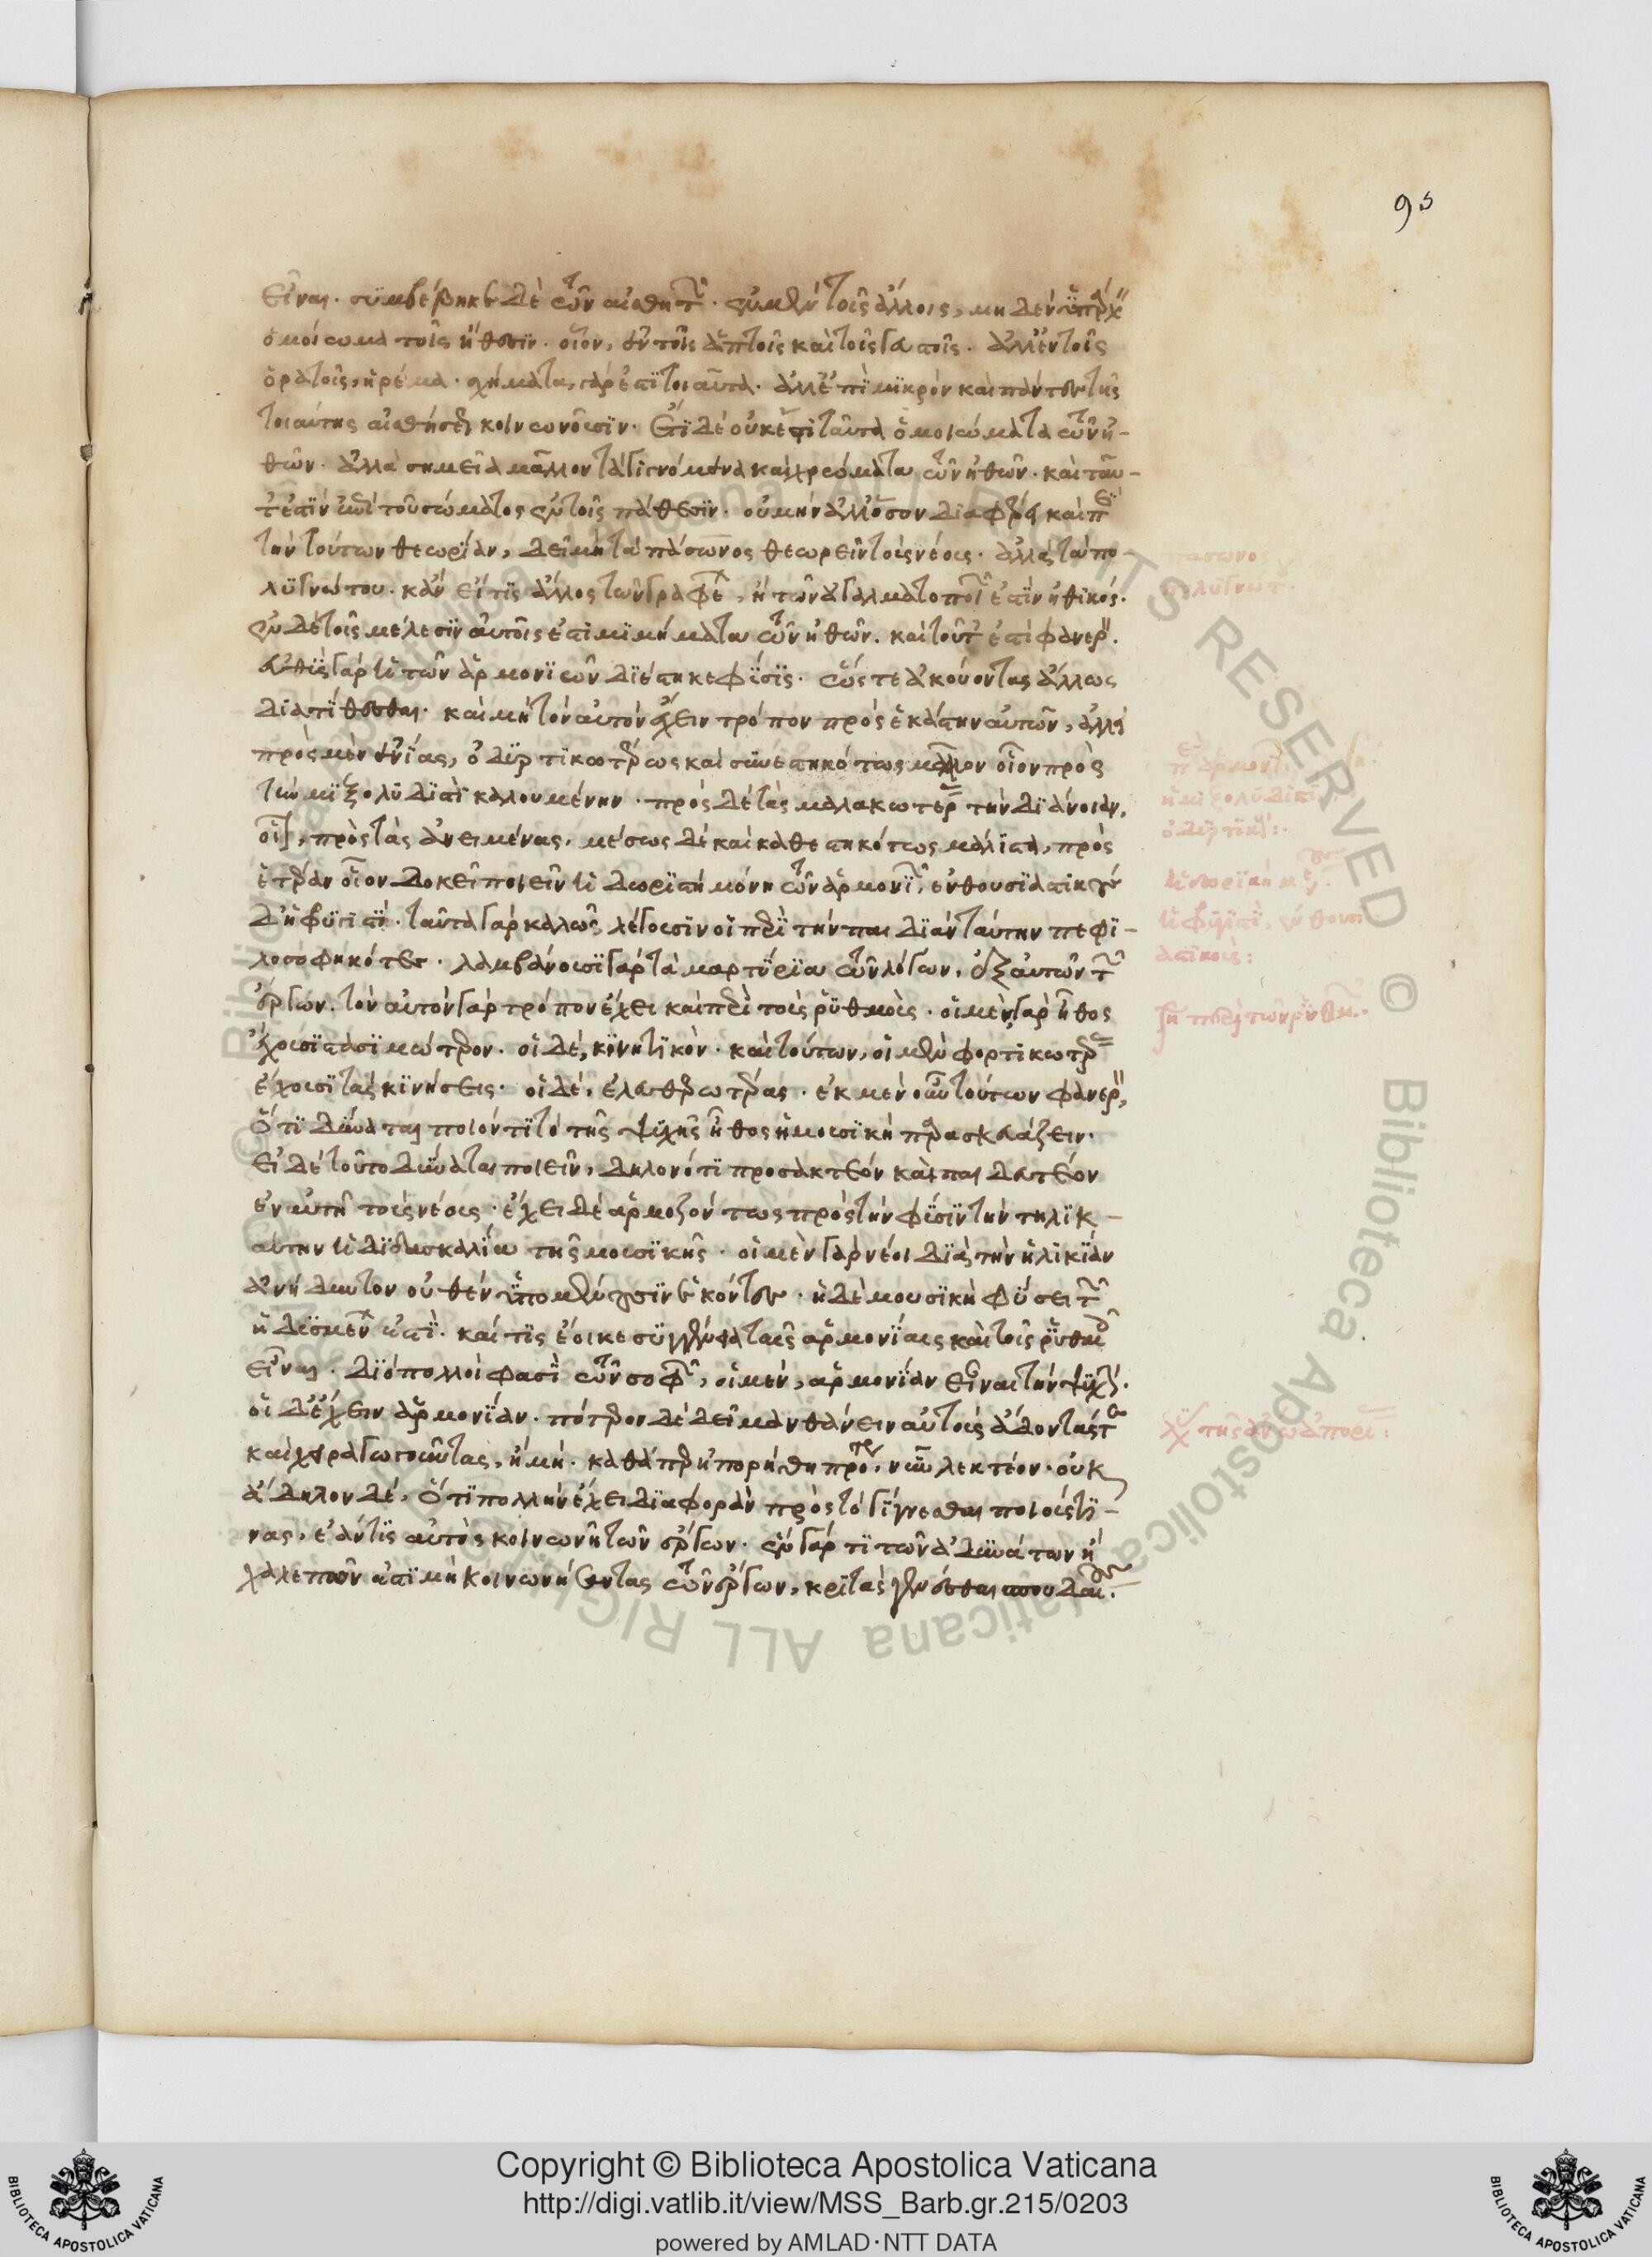 95
εἶναι. συμβέβηκε δὲ τῶν αἰσθητῶν. ἐν μὲν τοῖς ἄλλοις, μηδὲν ὑπάρχειν
ὁμοίωμα τοῖς ἤθεσιν. οἷον, ἐν τοῖς ἁπτοῖς καὶ τοῖς γευστοῖς. ἀλλ' ἐν τοῖς
ὁρατοῖς, ἠρέμα. σχήματα γάρ ἐστι τοιαῦτα. ἀλλ' ἐπὶ μικρὸν καὶ πάντες τῆς
τοιαύτης αἰσθήσεως κοινωνοῦσιν. ἔτι δὲ οὐκ ἔστι ταῦτα ὁμοιώματα τῶν ἠ-
θῶν. ἀλλὰ σημεῖα μᾶλλον τὰ γιγνόμενα καὶ χρώματα τῶν ἠθῶν. καὶ ταῦ-
τ' ἐστὶν ἐπὶ τοῦ σώματος ἐν τοῖς πάθεσιν. οὐ μὴν ἀλλ' ὅσον διαφέρει καὶ περὶ
τὴν τούτων θεωρίαν, δεῖ μὴ τὰ πάσωνος θεωρεῖν τοὺς νέους. ἀλλὰ τὰ πο-
λυγνώτου. κἂν εἴ τις ἄλλος τῶν γραφέων, ἢ τῶν ἀγαλματοποιῶν ἐστὶν ἠθικός.
ἐν δὲ τοῖς μέλεσιν αὐτοῖς ἐστι μιμήματα τῶν ἠθῶν. καὶ τοῦτ' ἐστὶ φανερόν.
εὐθὺς γὰρ ἡ τῶν ἁρμονιῶν διέστηκε φύσις. ὥστε ἀκούοντας ἄλλως
διατίθεσθαι. καὶ μὴ τὸν αὐτὸν ἔχειν τρόπον πρὸς ἑκάστην αὐτῶν, ἀλλὰ
πρὸς μὲν ἐνίας, ὀδυρτικωτέρως καὶ συνεστηκότως μᾶλλον οἷον πρὸς
τὴν μιξολυδιστὶ καλουμένην. πρὸς δὲ τὰς μαλακωτέρως τὴν διάνοιαν,
οἷον, πρὸς τὰς ἀνειμένας. μέσως δὲ καὶ καθεστηκότως μάλιστα, πρὸς
ἑτέραν οἷον δοκεῖ ποιεῖν ἡ δωριστὶ μόνη τῶν ἁρμονιῶν, ἐνθουσιαστικοὺς
δ' ἡ φρυγιστί. ταῦτα γὰρ καλῶς λέγουσιν οἱ περὶ τὴν παιδείαν ταύτην πεφι-
λοσοφηκότες. λαμβάνουσι γὰρ τὰ μαρτύρια τῶν λόγων, ἐξ αὐτῶν τῶν
ἔργων. τὸν αὐτὸν γὰρ τρόπον ἔχει καὶ περὶ τοὺς ῥυθμούς. οἱ μὲν γὰρ ἦθος
ἔχουσι στασιμώτερον. οἱ δὲ, κινητικόν. καὶ τούτων, οἱ μὲν φορτικωτέρας
ἔχουσι τὰς κινήσεις. οἱ δὲ, ἐλευθερωτέρας. ἐκ μὲν οὖν τούτων φανερόν,
ὅτι δύναται ποιόν τι τὸ τῆς ψυχῆς ἦθος ἡ μουσικὴ παρασκευάζειν.
εἰ δὲ τοῦτο δύναται ποιεῖν, δηλονότι προσακτέον καὶ παιδευτέον
ἐν αὐτῇ τοὺς νέους. ἔχει δὲ ἁρμοζόντως πρὸς τὴν φύσιν τὴν τηλικ-
αύτην ἡ διδασκαλία τῆς μουσικῆς. οἱ μὲν γὰρ νέοι διὰ τὴν ἡλικίαν
ἀνήδυντον οὐθὲν ὑπομένουσιν ἑκόντες. ἡ δὲ μουσικὴ φύσει τῶν
ἡδυσμένων ἐστί. καί τις ἔοικε συγγένεια ταῖς ἁρμονίαις καὶ τοῖς ῥυθμοῖς
εἶναι. διὸ πολλοί φασι τῶν σοφῶν, οἱ μὲν, ἁρμονίαν εἶναι τὴν ψυχήν.
οἱ δ' ἔχειν ἁρμονίαν. πότερον δὲ δεῖ μανθάνειν αὐτοὺς ἄδοντάς τε
καὶ χειρουργοῦντας, ἢ μή. καθάπερ ἠπορήθη πρότερον, νῦν λεκτέον. οὐκ
ἄδηλον δέ, ὅτι πολλὴν ἔχει διαφορὰν πρὸς τὸ γίγνεσθαι ποιούς τι-
νας, ἐάν τις αὐτὸς κοινωνῇ τῶν ἔργων. ἓν γάρ τι τῶν ἀδυνάτων ἢ
χαλεπῶν ἐστὶ μὴ κοινωνήσαντας τῶν ἔργων, κριτὰς γενέσθαι σπουδαίους.
πάσωνος
πολύγνωτ
περὶ ἁρμονι
ἡ μιξολυδιστὶ
ὀδυρτικὴ:
ἡ δωριστὶ
ἡ φρυγιστὶ, ἐνθουσι
αστικούς:
περὶ τῶν ῥυθμ
λύσις τῆς ἄνω ἀπορί:
Copyright © Biblioteca Apostolica Vaticana
http://digi.vatlib.it/view/MSS_Barb.gr.215/0203
powered by AMLAD·NTT DATA
BIBLIOTECA APOSTOLICA VATICANA
BIBLIOTECA APOSTOLICA VATICANA
© Biblioteca Apostolica Vaticana ALL RIGHTS RESERVED